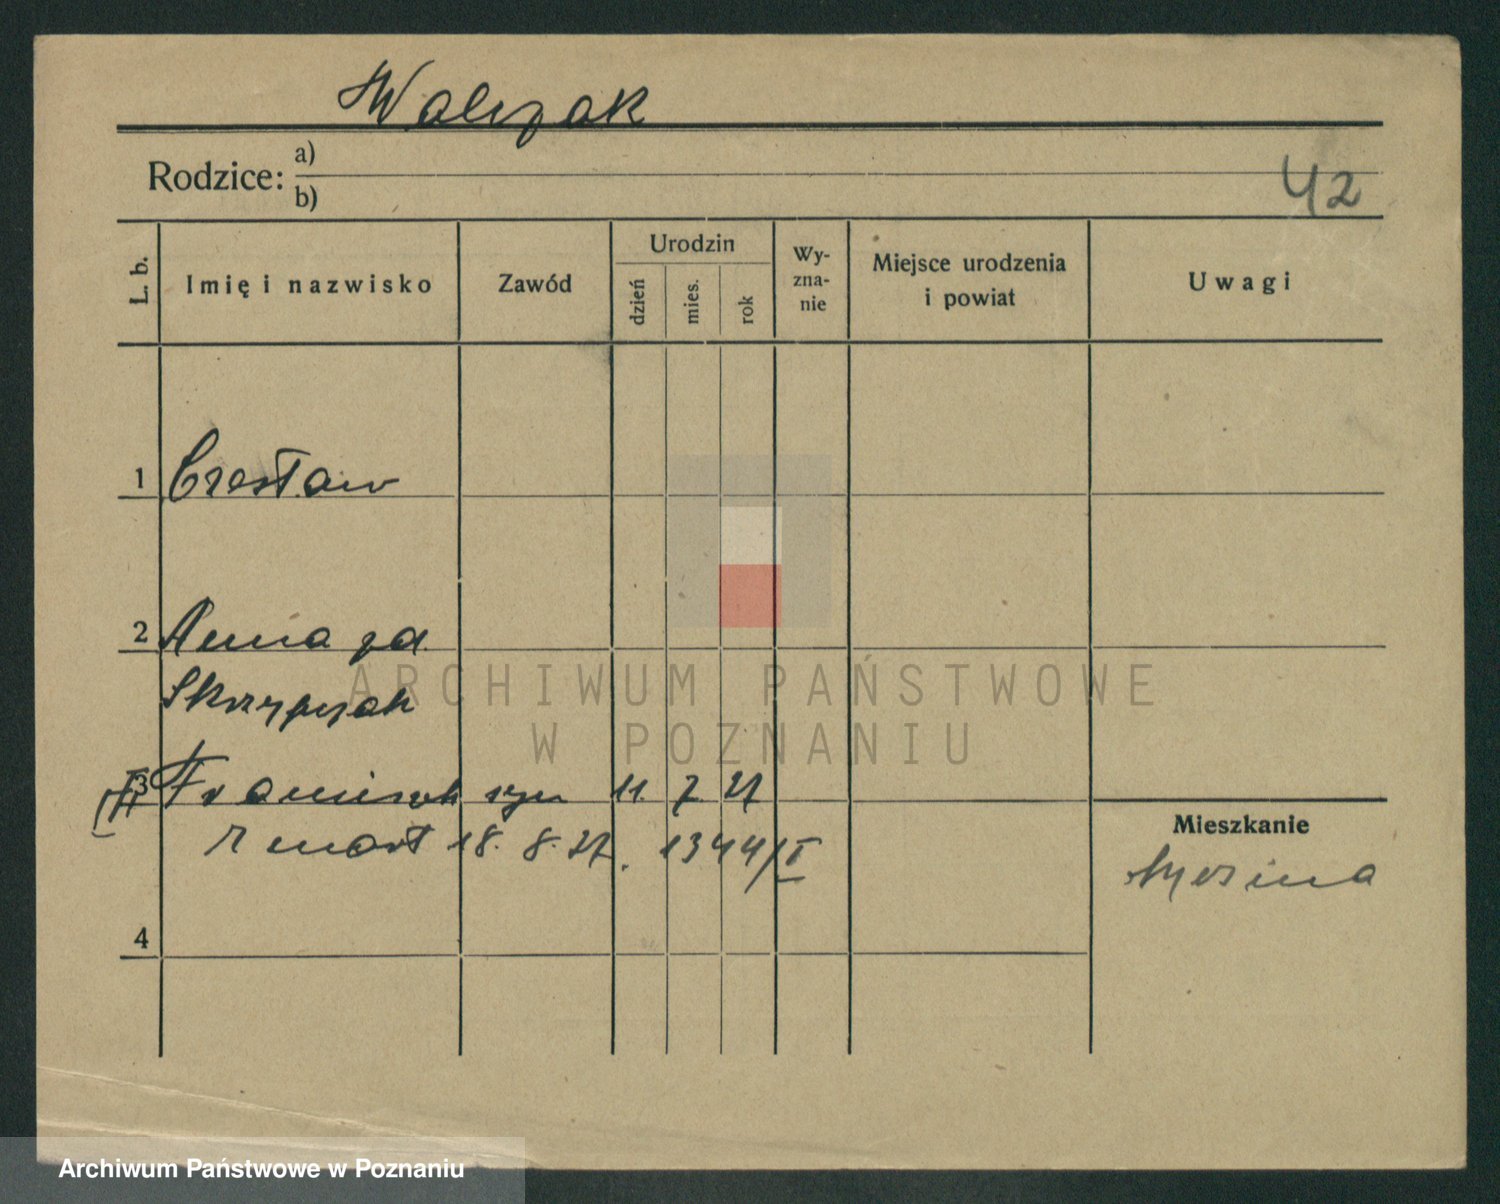 Walczak
Rodzice: a)
b)
42
L. b.
Imię i nazwisko
Zawód
Urodzin
dzień
mies.
rok
Wy-
zna-
nie
Miejsce urodzenia
i powiat
Uwagi
1 Czesław
2 Anna zd.
Skrzypczak
3 Franciszek syn 11. 7. 27
zmarł 18. 8. 27. 1344/II
4
Mieszkanie
ARCHIWUM PAŃSTWOWE
W POZNANIU
Archiwum Państwowe w Poznaniu